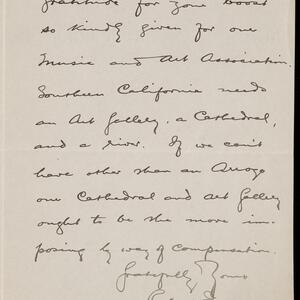 gratitude for your boost
so kindly given for our
Music and Art Association.
Southern California needs
an Art Gallery, a Cathedral,
and a river. If we can't
have other than an Arroyo
our Cathedral and Art Gallery
ought to be the more im-
posing by way of compensation.
Gratefully Yours